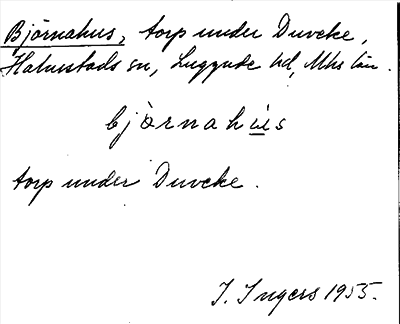 Björnahus, torp under Duveke,
Halmstads sn, Luggude hd, Mhs län.
bjòrnahús
torp under Duveke.
I. Ingers 1955.